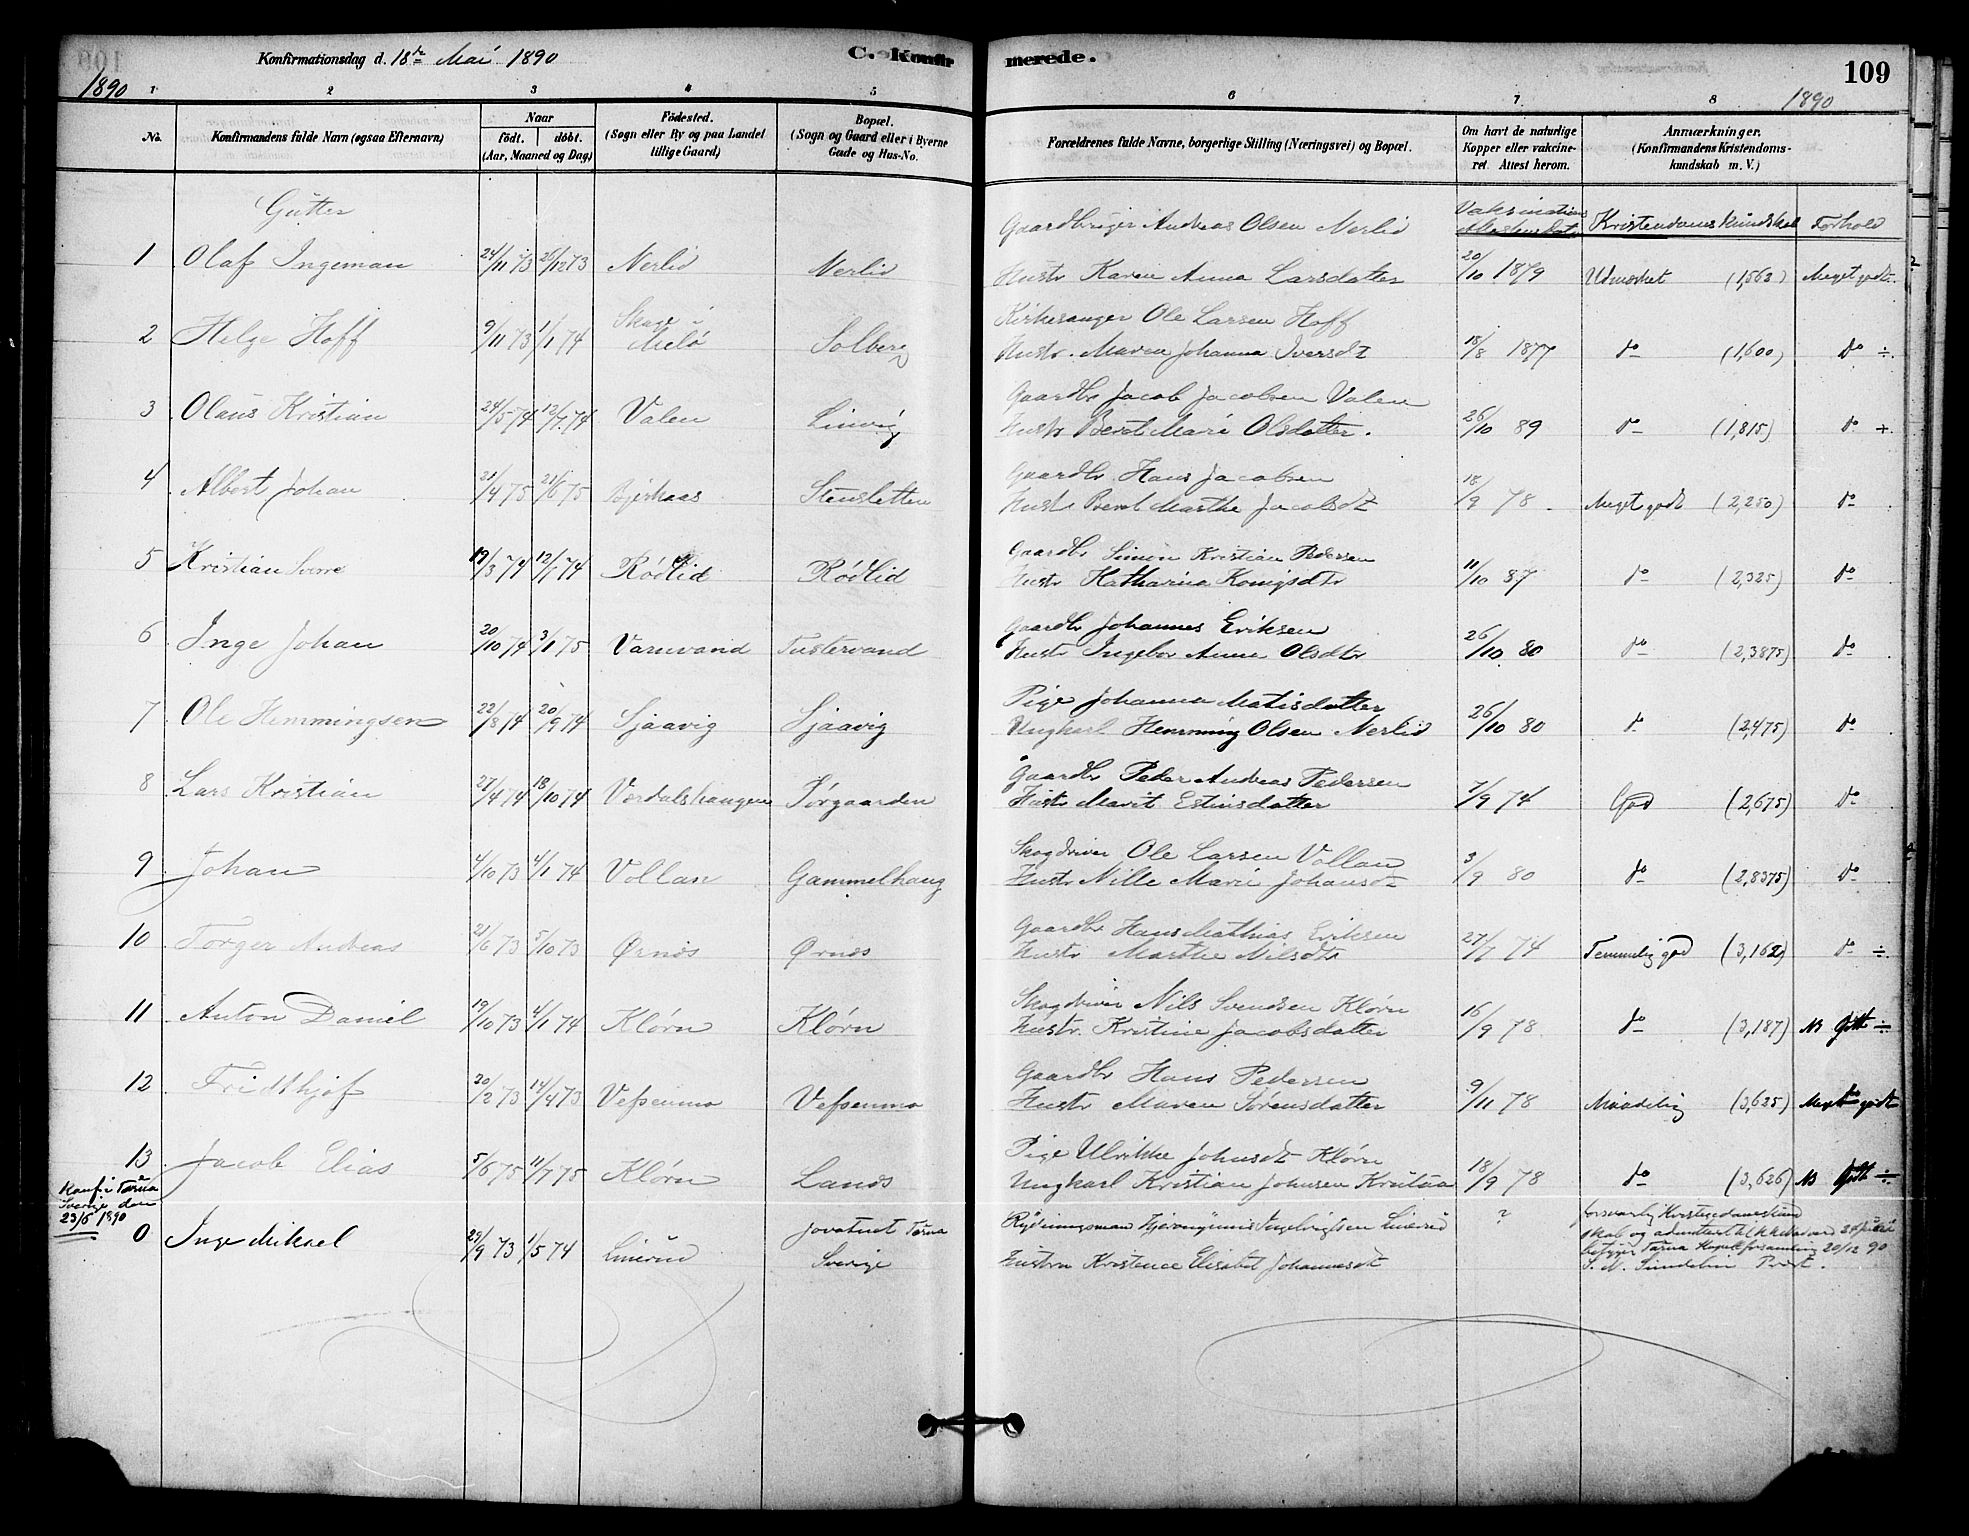 Konfirmationsdag d. 18de Mai 1890
C. Konfirmerede.
109
1890
1890
1 2 3 4 5 6 7 8
No.
Konfirmandens fulde Navn (ogsaa Efternavn)
Naar
født. døbt.
(Aar, Maaned og Dag)
Fødested.
(Sogn eller By og paa Landet
tillige Gaard)
Bopæl.
(Sogn og Gaard eller i Byerne
Gade og Hus-No.
Forældrenes fulde Navne, borgerlige Stilling (Næringsvei) og Bopæl.
Om havt de naturlige
Kopper eller vakcine-
ret. Attest herom.
Anmærkninger.
(Konfirmandens Kristendoms-
kundskab m. V.)
Gutter
Vaksinations
Kristendomskundskab Forhold
Gaardbruger Andreas Olsen Nerlid
1 Olaf Ingeman 24/11 73 26/12 73 Nerlid Nerlid
Hustr Karen Anna Larsdatter 20/10 1879 Udmærket (1,563) Meget godt
Kirkesanger Ole Larsen Hoff
2 Helge Hoff 9/11 73 1/1 74 Skage i Melö Solberg
Hustr. Maren Johanna Iversdt 18/8 1877 do (1,600) do ÷
Gaardbr Jacob Jacobsen Valen
3 Olaus Kristian 24/5 74 12/7 74 Valen
Hustr Beret Marie Olsdatter. 26/10 89 do (1,815) do +
Gaardbr Hans Jacobsen
4 Albert Johan 21/4 75 21/6 75 Bjerkaas Stensletten
Hustr Beret Marthe Jacobsdt 18/9 78 Meget godt (2,250) do
Gaardbr Simon Kristian Pedersen
5 Kristian Sverre 19/3 74 12/7 74 Rödlid Rödlid
Hustr Katharina Konigsdtr 11/10 87 do (2,325) do
Gaardbr Johannes Eriksen
6 Inge Johan 20/10 74 3/1 75 Varnvand Tustervand
Hustr Ingebor Anna Olsdtr 26/10 80 do (2,3875) do
Pige Johanna Matisdatter
7 Ole Hemmingsen 22/8 74 20/9 74 Sjaavig Sjaavig
Ungkarl Hemming Olsen Nerlid 26/10 80 do (2,475) do
Gaardbr Peder Andreas Pedersen
8 Lars Kristian 27/4 74 18/10 74 Værdalshaugen Törgaarden
Hustr Marit Estinsdatter 7/9 74 God (2,675) do
Skogdriver Ole Larsen Vollan
9 Johan 4/10 73 4/1 74 Vollan Gammelhaug
Hustr Nille Marie Johansdt 3/9 80 do (2,8375) do
Gaardbr Hans Mathias Eriksen
10 Torger Andreas 21/6 73 5/10 73 Ørnæs Ørnæs
Hustr Marthe Nilsdtr 27/7 74 Temmelig god (3,162) do ÷
Skogdriver Nils Svendsen Klørn
11 Anton Daniel 19/10 73 4/1 74 Klørn Klørn
Hustr. Kristine Jacobsdatter 16/9 78 do (3,187) NB Godt ÷
Gaardbr Hans Pedersen
12 Fridthjof 20/2 73 14/4 73 Vefsenmo Vefsenmo
Hustr Maren Sörensdatter 9/11 78 Maadelig (3,625) Meget godt
Pige Ulrikke Johnsdt Klørn
13 Jacob Elias 5/6 75 11/7 75 Klørn Lands
Ungkarl Kristian Johnsen Krutaa 18/9 78 do (3,626) NB Godt ÷
Konf i Tärna
Sverige den
23/6 1890
0 Inge Mikael 29/9 73 1/5 74 Lineriid Jovatnet Tärna
Sverige
Rydningsmand Hjeronymus Ingebrigtsen Lineriid ?
Hustru Kristence Elisabet Johannesdt
forsvarlig Kristendomskund
skab og
Tärna 20/12 90
S. N. Sundelin Præst.